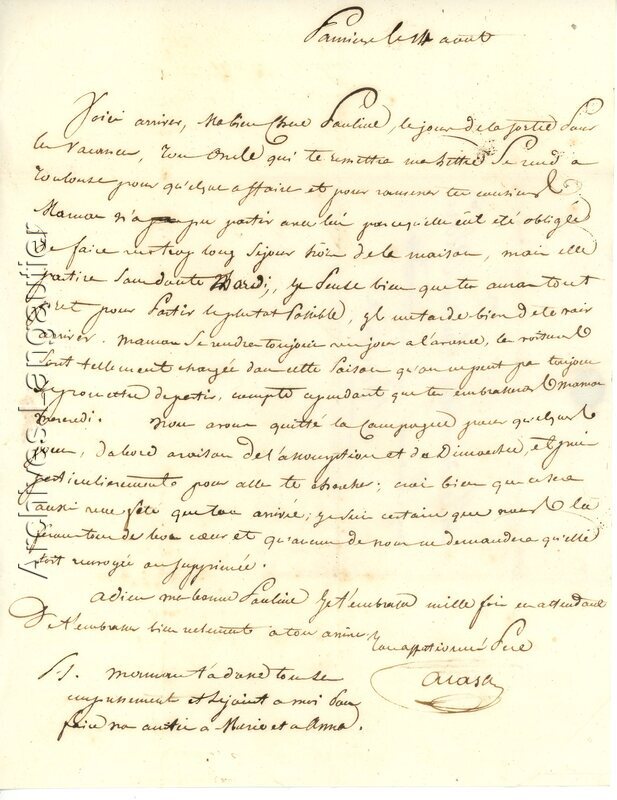 Pamiers le 14 août
Voici arriver, Ma bien Chere Pauline, le jour de la sortie pour
les Vacances, ton Oncle qui te remettra ma lettre Se rend à
Toulouse pour quelque affaire et pour ramener tes cousines
Maman n'a pu partir avec lui parcequ'elle eût été obligée
De faire un trop long séjour hors de la maison, mais elle
partira Sans doute Mardi, je pense bien que tu auras tout
pret pour partir le plutot possible, il me tarde bien de te voir
arriver. Maman Se rendra toujours un jour a l'avance, les voitures
Sont tellement chargées dans cette Saison qu'on ne peut pas toujours
se promettre de partir, compte cependant que tu embrasseras maman
mercredi. Nous avons quitté la Campagne pour quelques
jours, d'abord a raison de l'assomption et du Dimanche, et puis
particulierement pour aller te chercher; crois bien que ce sera
aussi une fête que ton arrivée; je suis certain que nous la
fêterons tous de bon cœur et qu'aucun de nous ne demandera qu'elle
soit renvoyée ou supprimée.
adieu ma bonne Pauline Je t'embrasse mille fois en attendant
De t'embrasser bien tendrement a ton arrivée
Ton affectionné Père
PS. maman t'a donné tous
et se joint a moi pour
faire nos amitiés a Marie et a Anna.
Archives-Lemoustier